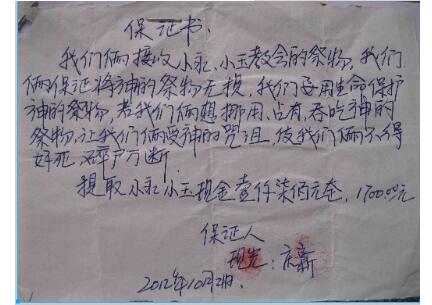 保证书
我们俩接收小永、小玉教会的祭物,我们
俩保证将神的祭物无损,我们要用生命保护
神的祭物,若我们俩想挪用、占有、吞吃神的
祭物,让我们俩受神的咒诅,使我们俩不得
好死 碎尸万断
提取小永小玉现金壹仟柒佰元整,1700.00元
保证人
2012年10月2日